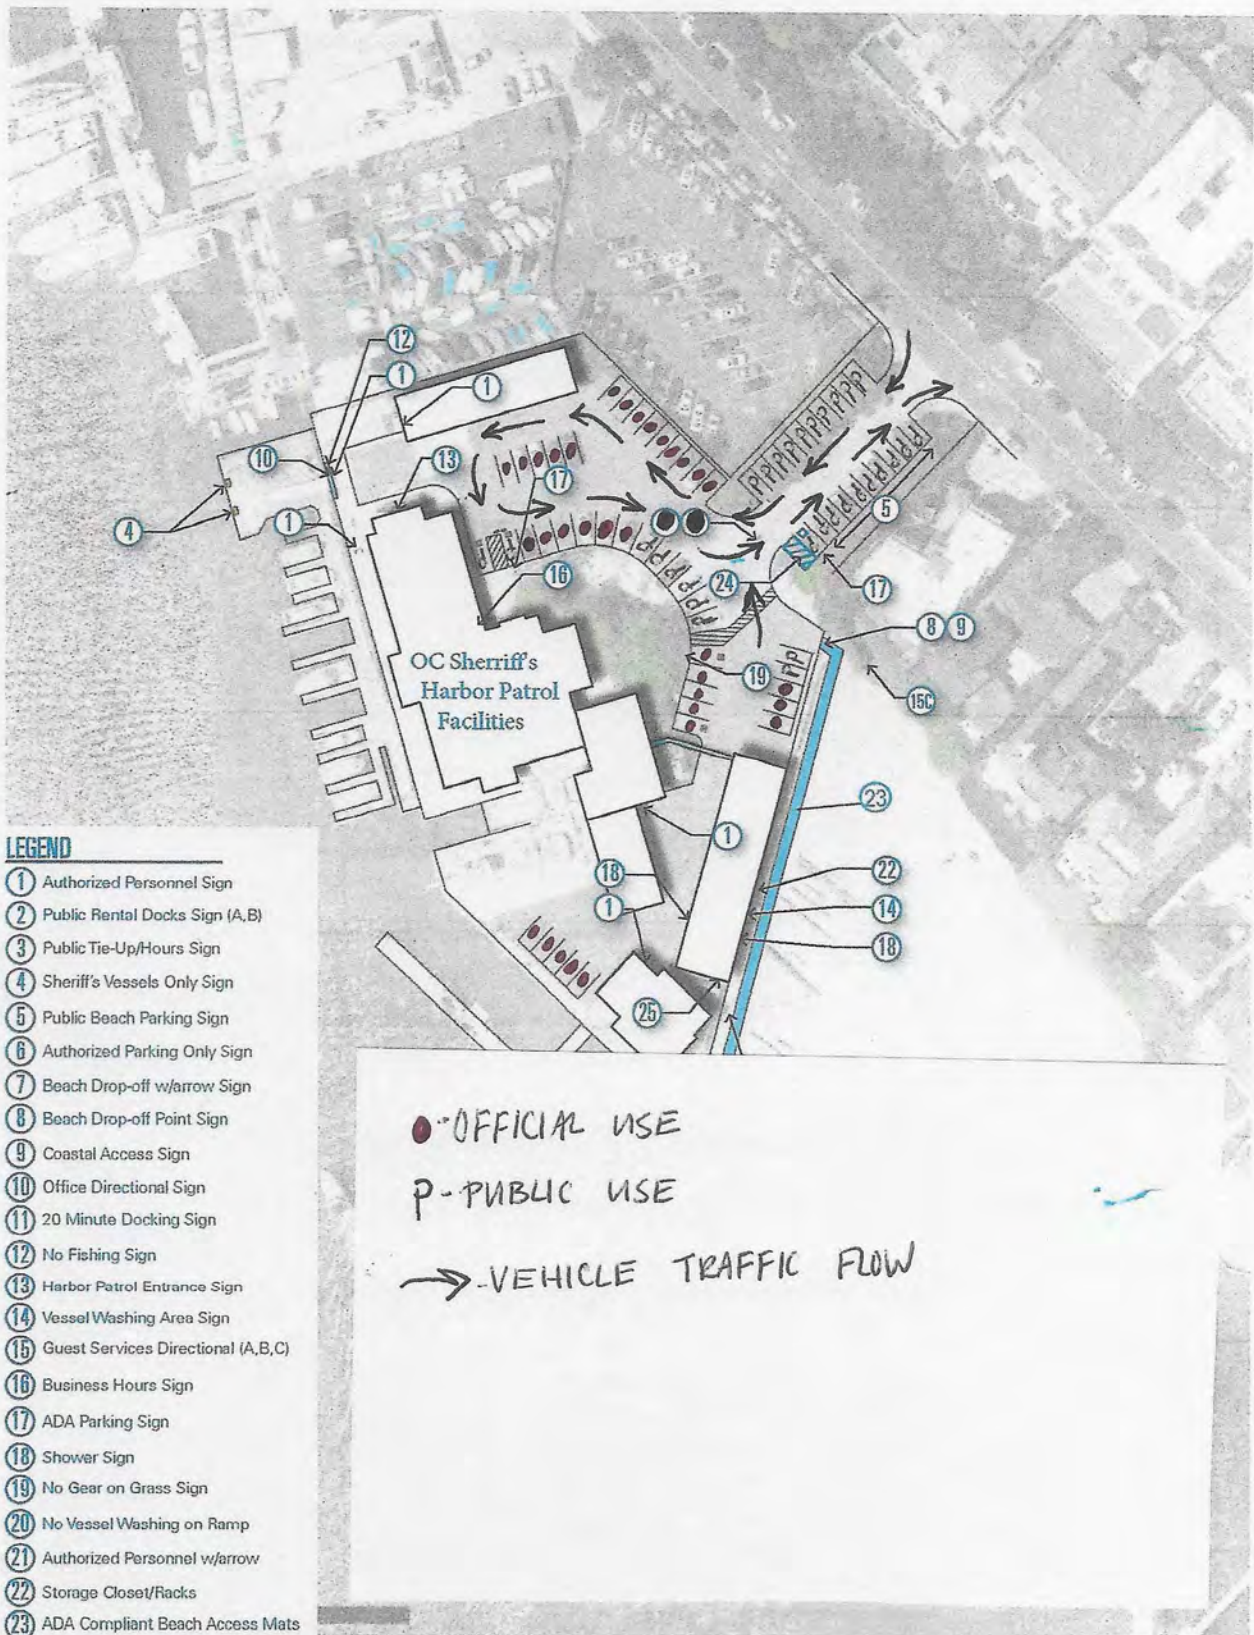 12
1
1
10
13
17
4
1
5
16
24
17
8 9
OC Sherriff's
Harbor Patrol
Facilities
19
15C
23
1
18
22
1
14
18
25
P P P P P P P P P
P P P P P P P P P
P P P P P P P
P P
LEGEND
1 Authorized Personnel Sign
2 Public Rental Docks Sign (A,B)
3 Public Tie-Up/Hours Sign
4 Sheriff's Vessels Only Sign
5 Public Beach Parking Sign
6 Authorized Parking Only Sign
7 Beach Drop-off w/arrow Sign
8 Beach Drop-off Point Sign
9 Coastal Access Sign
10 Office Directional Sign
11 20 Minute Docking Sign
12 No Fishing Sign
13 Harbor Patrol Entrance Sign
14 Vessel Washing Area Sign
15 Guest Services Directional (A,B,C)
16 Business Hours Sign
17 ADA Parking Sign
18 Shower Sign
19 No Gear on Grass Sign
20 No Vessel Washing on Ramp
21 Authorized Personnel w/arrow
22 Storage Closet/Racks
23 ADA Compliant Beach Access Mats
- OFFICIAL USE
P - PUBLIC USE
- VEHICLE TRAFFIC FLOW